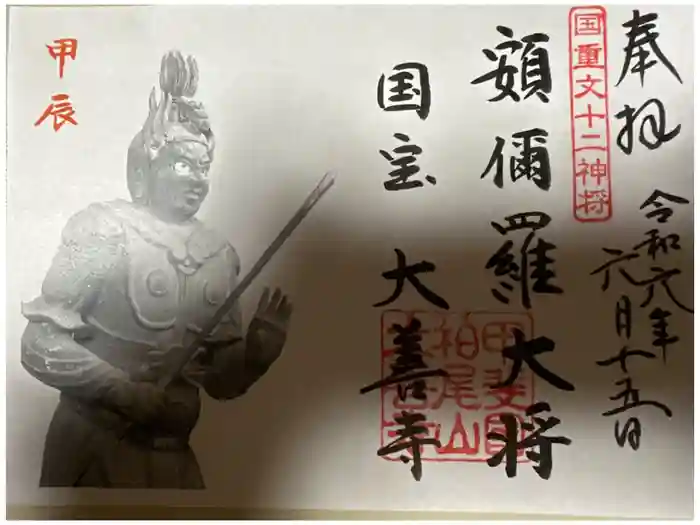 奉拝
令和六年
六月十五日
国重文十二神将
頞儞羅大将
国宝 大善寺
甲斐国
柏尾山
善寺
甲辰